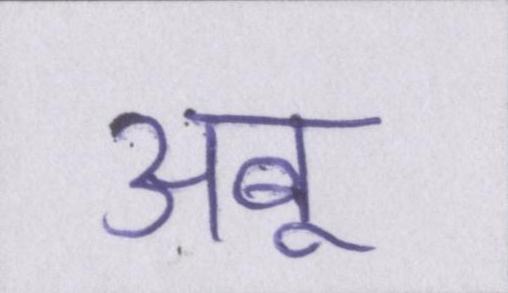 अबू